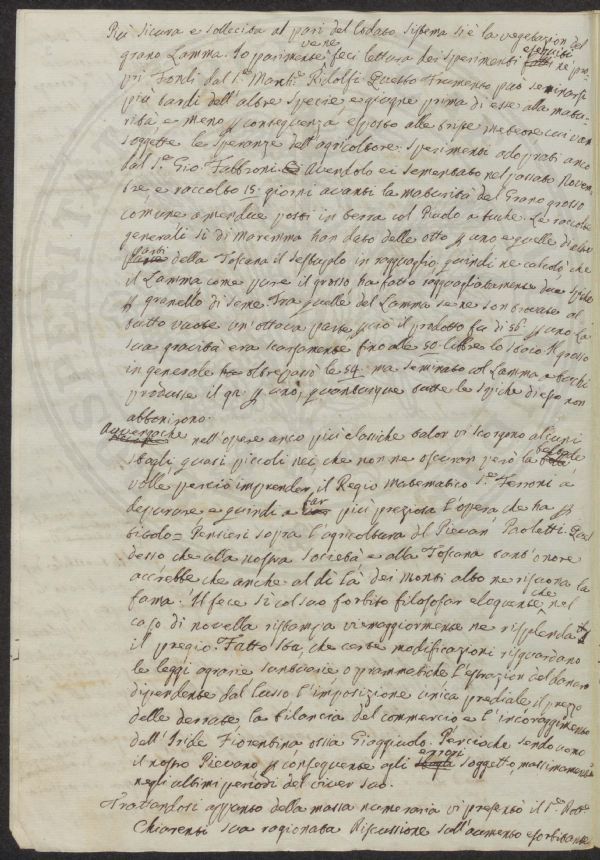 Più sicura e sollecita al pari del lodato sistema si è la vegetazion del
grano Lamma. Io parimente vene feci lettura dei sperimenti eseguiti ne pro
pri Fondi dal S.r March.e Ridolfi. Questo Frumento può seminarsi
più tardi dell'altre specie e giugne prima di esse alla matu
rità e meno p conseguenza esposto alle triste meteore cui van
soggette le speranze dell'agricoltore. Sperimenti adoprati anco
dal S.r Gio. Fabbroni. Avendolo ei sementato nel passato Novem
bre, e raccolto 15. giorni avanti la maturità del Grano grosso
comune amendue posti in terra col Piuolo a buche. Le raccolte
generali sì di Maremma han dato delle otto p uno e quelle d'altre
parti della Toscana il sestuplo in ragguaglio quindi ne calcolò che
il Lamma come pure il grosso ha fatto ragguagliatamente due spighe
p granello di seme. Tra quelle del Lamma se ne son trovate al
tutto vuote un'ottava parte p ciò il prodotto fu di 56. p uno la
sua gravità era scarsamente fino alle 50 libbre lo staio. Il grosso
in generale oltrepassò le 54. ma seminato col Lamma a buchi
produsse il 91. p uno, quantunque tutte le spighe di esso non
abbonirono.
Avvegnache nell'opere anco più classiche talor vi scorgono alcuni
sbagli quasi piccoli nei, che non ne oscuran però la
volle perciò imprender, il Regio Matematico S.r Ferroni a
depurare e quindi a far più preziosa l'opera che ha p
titolo = Pensieri sopra l'agricoltura del Piovan Paoletti. Quel
desso che alla nostra società e alla Toscana tant'onore
accrebbe che anche al di là dei monti alto ne risuona la
fama. Il fece sì col suo forbito filosofar eloquente che nel
caso di novella ristampa viemaggiormente ne risplenda
il pregio. Fatto sta, che certe modificazioni risguardano
le leggi agrarie suntuarie o prammatiche l'estrazion del danaro
dipendente dal lusso l'imposizione unica prediale il prezzo
delle derrate la bilancia del commercio e l'incoraggimento
dell'Iride Fiorentina ossia Giaggiuolo. Perciocchè sendo uomo
il nostro Pievano p conseguente agli errori soggetto, massimamente
negli ultimi periodi del viver suo.
Trattandosi appunto della massa numeraria vi presentò il S.r Dott.
Chiarenti sua ragionata Discussione sull'aumento esorbitante